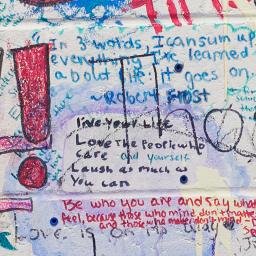 "In 3 words, I can sum up
everything I've learned
about life: it goes on.
~Robert Frost
live your Life
Love the People who
care and yourself
Laugh as much as
You can
Be who you are and say what
feel, because those who mind don't matter
and those who matter don't mind
Love is